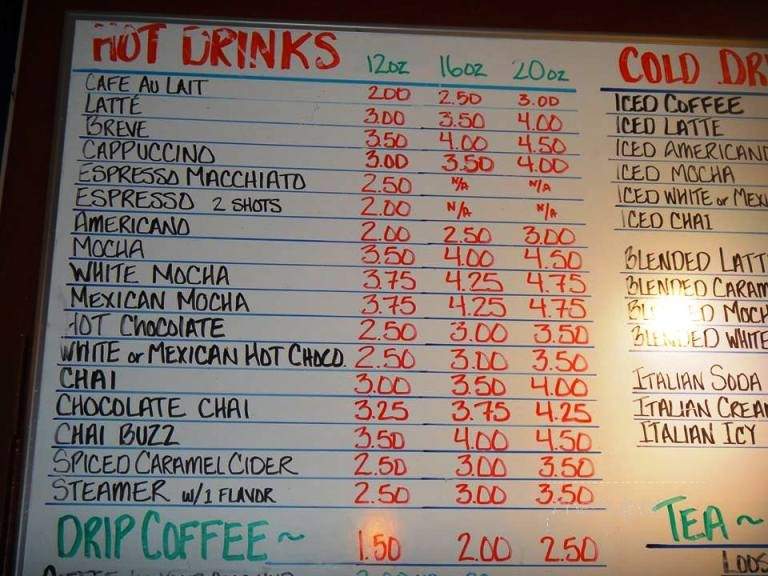 HOT DRINKS 12oz 16oz 20oz
CAFE AU LAIT 2.00 2.50 3.00
LATTÉ 3.00 3.50 4.00
BREVE 3.50 4.00 4.50
CAPPUCCINO 3.00 3.50 4.00
ESPRESSO MACCHIATO 2.50 N/A N/A
ESPRESSO 2 SHOTS 2.00 N/A N/A
AMERICANO 2.00 2.50 3.00
MOCHA 3.50 4.00 4.50
WHITE MOCHA 3.75 4.25 4.75
MEXICAN MOCHA 3.75 4.25 4.75
HOT CHOCOLATE 2.50 3.00 3.50
WHITE or MEXICAN HOT CHOCO. 2.50 3.00 3.50
CHAI 3.00 3.50 4.00
CHOCOLATE CHAI 3.25 3.75 4.25
CHAI BUZZ 3.50 4.00 4.50
SPICED CARAMEL CIDER 2.50 3.00 3.50
STEAMER W/1 FLAVOR 2.50 3.00 3.50
DRIP COFFEE ~ 1.50 2.00 2.50
COLD DR
ICED COFFEE
ICED LATTE
ICED AMERICANO
ICED MOCHA
ICED WHITE or MEXI
ICED CHAI
BLENDED LATT
BLENDED CARAM
BLENDED MOCH
BLENDED WHITE
ITALIAN SODA
ITALIAN CREA
ITALIAN ICY
TEA ~
LOOS